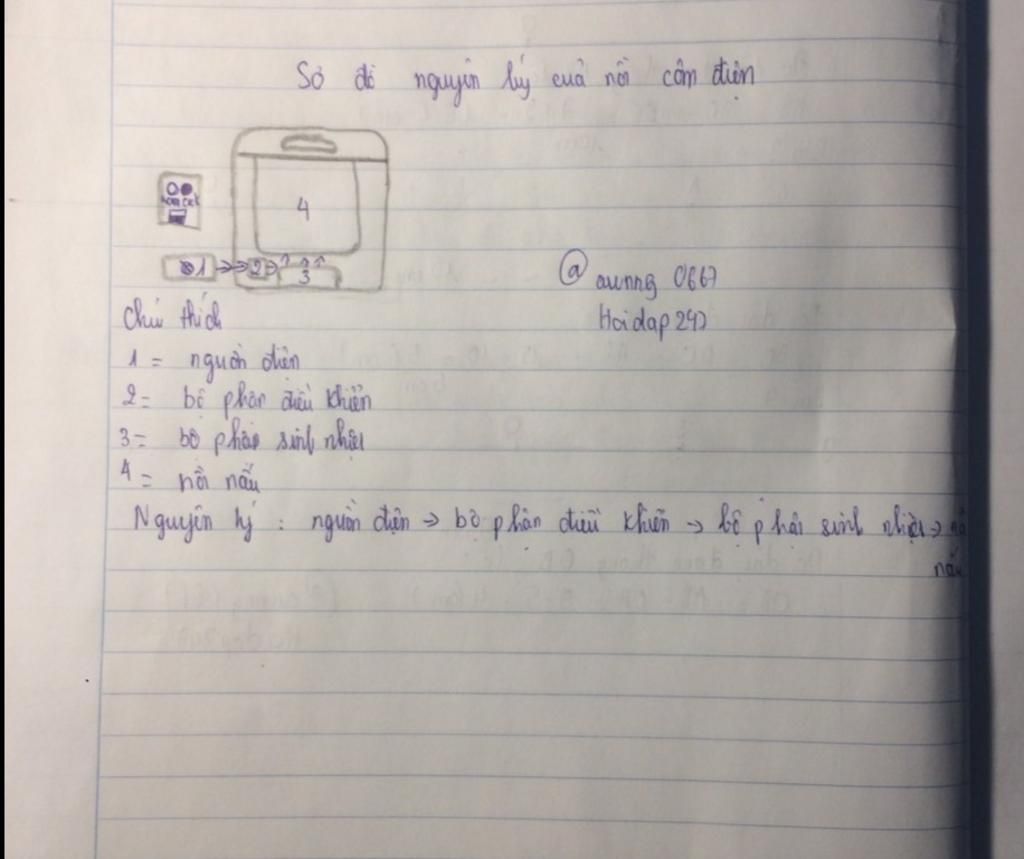 Sơ đồ nguyên lý của nồi cơm điện
4
1
2
3
@ aunng 0667
Hoidap247
Chú thích
1 = nguồn điện
2 = bộ phận điều khiển
3 = bộ phận sinh nhiệt
4 = nồi nấu
Nguyên lý : nguồn điện → bộ phận điều khiển → bộ phận sinh nhiệt → nồi
nấu